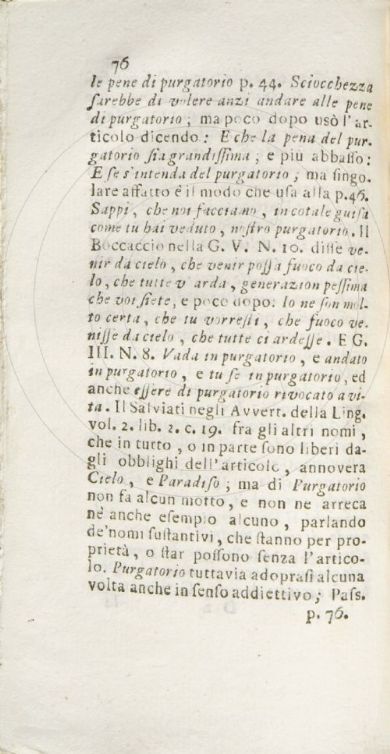 76
le pene di purgatorio p. 44. Sciocchezza
sarebbe di volere anzi andare alle pene
di purgatorio; ma poco dopo usò l'ar-
ticolo dicendo: E che la pena del pur-
gatorio sia grandissima; e più abbasso:
E se s'intenda del purgatorio; ma singo.
lare affatto è il modo che usa alla p.46.
Sappi, che noi facciano, in cotale guisa
come tu hai veduto, nostro purgatorio. Il
Boccaccio nella G. V. N. 10. disse ve-
nir da cielo, che venir possa fuoco da cie-
lo, che tutte v' arda, generazion pessima
che voi siete, e poco dopo: Io ne son mol-
to certa, che tu vorresti, che fuoco ve-
nisse da cielo, che tutte ci ardesse. E G.
III. N. 8. Vada in purgatorio, e andato
in purgatorio, e tu se in purgatorio, ed
anche essere di purgatorio rivocato a vi-
ta. Il Salviati negli Avvert. della Ling.
vol. 2. lib. 2. c. 19. fra gli altri nomi,
che in tutto, o in parte sono liberi da-
gli obblighi dell'articolo, annovera
Cielo, e Paradiso; ma di Purgatorio
non fa alcun motto, e non ne arreca
nè anche esempio alcuno, parlando
de'nomi sustantivi, che stanno per pro-
prietà, o star possono senza l'artico-
lo. Purgatorio tuttavia adoprasi alcuna
volta anche in senso addiettivo; Pass.
p. 76.